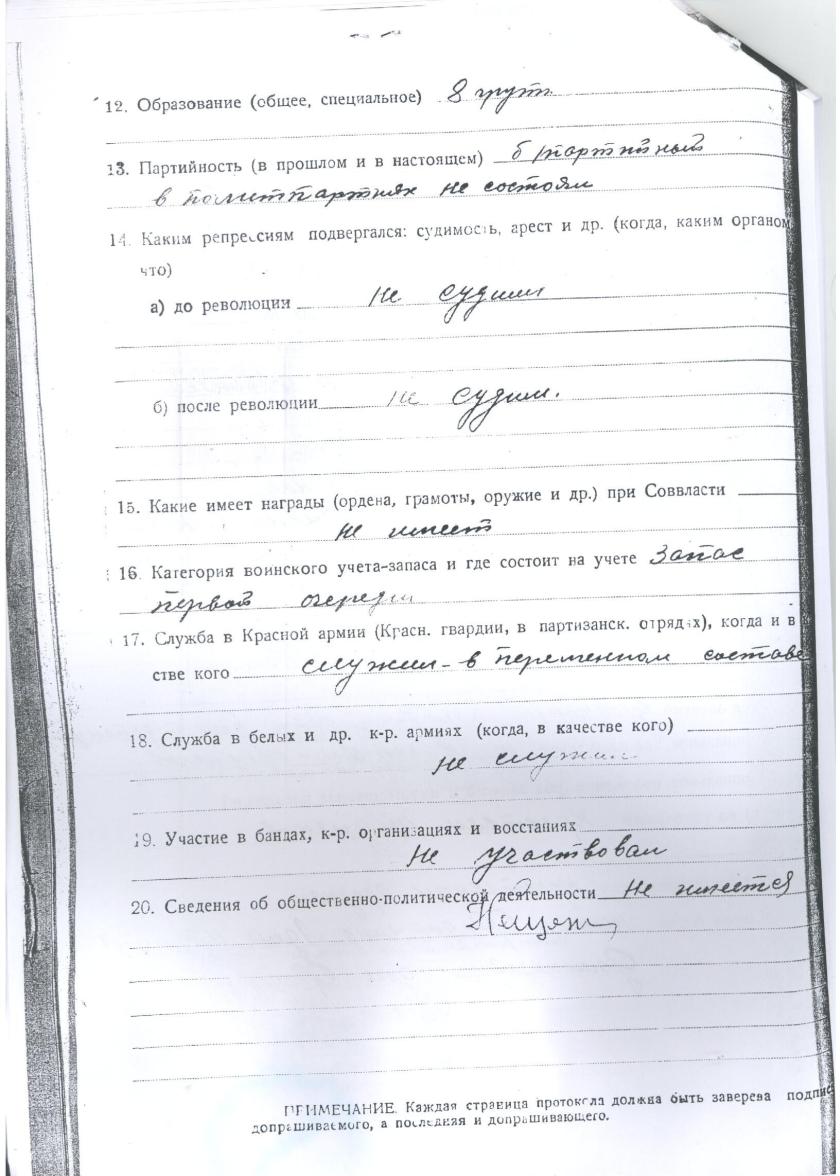 12. Образование (общее, специальное) 8 групп
13. Партийность (в прошлом и в настоящем) б/партийный
в политпартиях не состоял
14. Каким репрессиям подвергался: судимость, арест и др. (когда, каким органом
что)
а) до революции не судим
б) после революции не судим.
15. Какие имеет награды (ордена, грамоты, оружие и др.) при Соввласти
не имеет
16. Категория воинского учета-запаса и где состоит на учете Запас
первой очереди
17. Служба в Красной армии (Красн. гвардии, в партизанск. отрядах), когда и в
стве кого служил - в переменном составе
18. Служба в белых и др. к-р. армиях (когда, в качестве кого)
не служил
19. Участие в бандах, к-р. организациях и восстаниях
не участвовал
20. Сведения об общественно-политической деятельности не имеется
ПРИМЕЧАНИЕ. Каждая страница протокола должна быть заверева подпис
допрашиваемого, а последняя и допрашивающего.